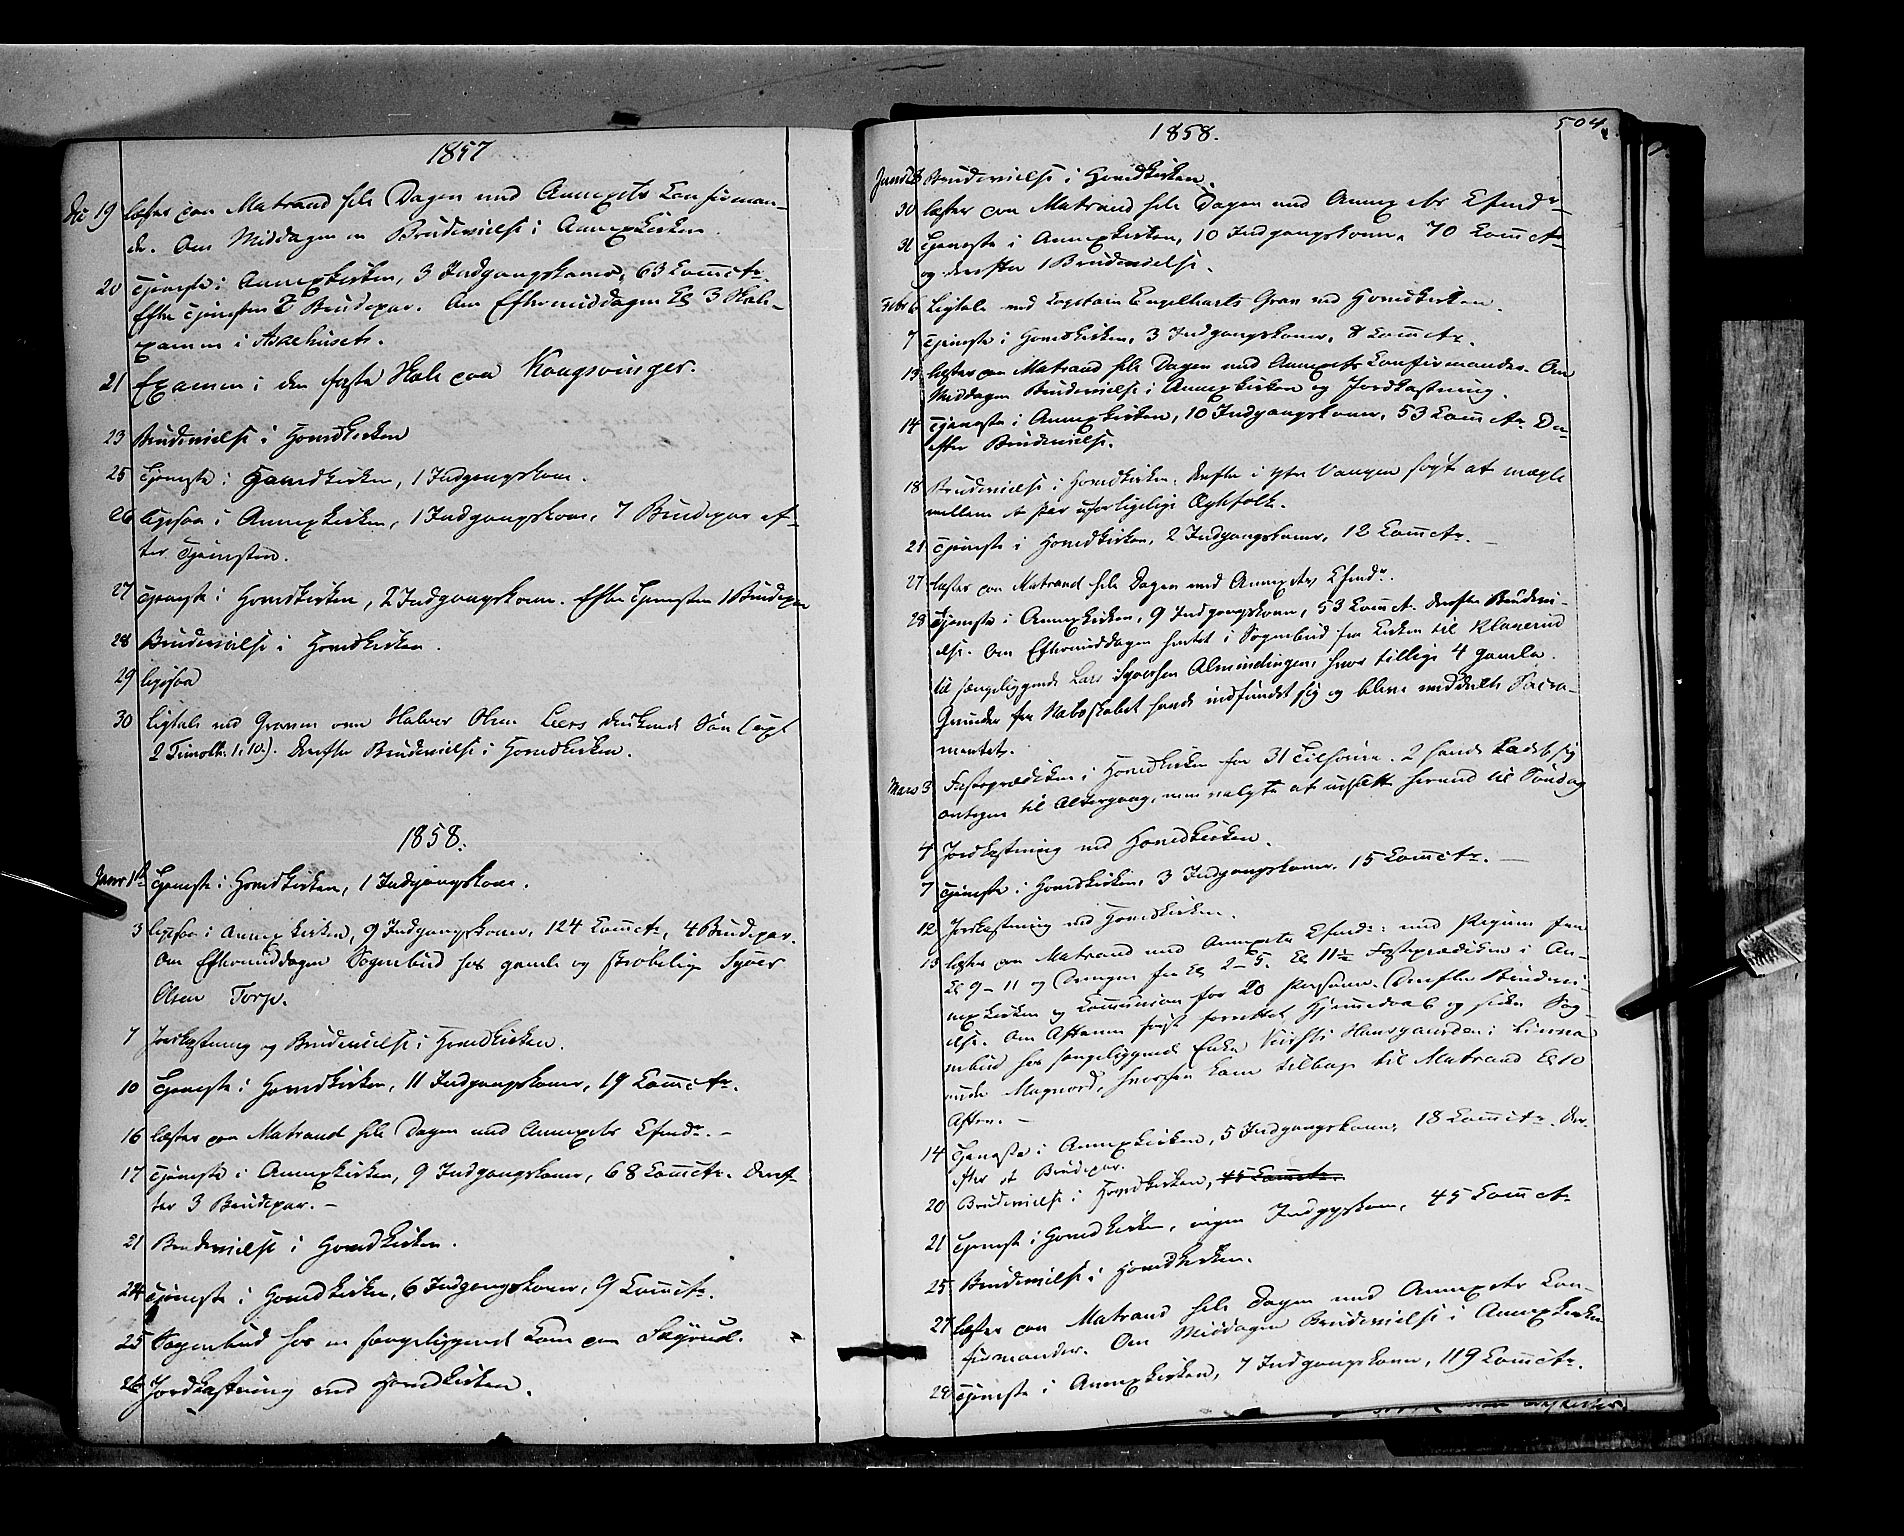 1857
Dec 19 læster paa Matrand hele Dagen med Annexets Confirman-
der. Om Middagen en Brudevielse i Annexkirken
20 Tjeneste i Annexkirken, 3 Indgangskoner, 63 Comctr.
Efter Tjenesten 2 Brudepar. Om Eftermiddagen Kl 3 Skole-
examen i
21 Examen i den faste Skole paa Kongsvinger.
23 Brudevielse i Hovedkirken
25 Tjeneste i Hovedkirken, 1 Indgangskone.
26 ligesaa i Annexkirken, 1 Indgangskone, 7 Brudepar ef-
ter Tjenesten.
27 Tjeneste i Hovedkirken, 2 Indgangskoner. Efter Tjenesten 1 Brudepar
28 Brudevielse i Hovedkirken.
29 ligesaa
30 Ligtale ved Graven over Halvor Olsen Leers Søn (text
2 Timoth. 1, 10.). Derefter Brudevielse i Hovedkirken.
1858.
Janr 1ste Tjeneste i Hovedkirken, 1 Indgangskone.
3 ligesaa i Annexkirken, 9 Indgangskoner, 124 Comctr, 4 Brudepar.
Om Eftermiddagen Sognebud hos gamle og skrøbelige Syver
Olsen Torp.
7 Jordkastning og Brudevielse i Hovedkirken.
10 Tjeneste i Hovedkirken, 11 Indgangskoner, 19 Comctr.
16 læster paa Matrand hele Dagen med Annexets Cfmdr. –
17 Tjeneste i Annexkirken, 9 Indgangskoner, 68 Comctr. Deref-
ter 3 Brudepar. –
21 Brudevielse i Hovedkirken.
24 Tjeneste i Hovedkirken, 6 Indgangskoner, 9 Comctr.
25 Sognebud hos en sengeliggende Kone paa Skyrud.
26 Jordkastning ved Hovedkirken.
1858.
504
Brudevielse i Hovedkirken.
30 læster paa Matrand hele Dagen med Annexets Cfmdr
31 Tjeneste i Annexkirken, 10 Indgangskoner, 70 Comctr
og derefter 1 Brudevielse.
Febr 6 Ligtale ved Capitain Engelharts Grav ved Hovedkirken.
7 Tjeneste i Hovedkirken, 3 Indgangskoner, 8 Comctr.
13 læster paa Matrand hele Dagen med Annexets Confirmander. Om
Middagen Brudevielse i Annexkirken og Jordkastning.
14 Tjeneste i Annexkirken, 10 Indgangskoner, 53 Comctr. Der-
efter Brudevielse.
18 Brudevielse i Hovedkirken. Derefter i ytre Vangen søgt at mægle
mellem et Par uforligelige Ægtefolk.
21 Tjeneste i Hovedkirken, 2 Indgangskoner, 12 Comctr. –
27 læster paa Matrand hele Dagen med Annexets Cfmdr.
28 Tjeneste i Annexkirken, 9 Indgangskoner, 53 Comctr. Derefter Brudevi-
else. Om Eftermiddagen hentet i Sognebud fra Kirken til Klanerud
til sengeliggende Lars Syversen Almindingen, hvor tillige 4 gamle
Qvinder fra Naboskabet havde indfundet sig og bleve meddelte Sacra-
mentet.
Mars 3 Fasteprædiken i Hovedkirken for 31 Tilhørere. 2 havde ladet sig
antegne til Altergang, men valgte at udsætte hermed til Søndag
4 Jordkastning ved Hovedkirken.
7 Tjeneste i Hovedkirken, 3 Indgangskoner, 15 Comctr. –
12 Jordkastning ved Hovedkirken.
13 læster paa Matrand med Annexets Cfmdr: med Pigerne fra
Kl 9–11 og Drengene fra Kl 2–5. Kl 11½ Fasteprædiken i An-
nexkirken og Communion for 20 Personer. Derefter Brudevi-
else. Om Aftenen først forrettet Hjemmedaab og siden Sog-
nebud hos sengeliggende Enke Kirsti Hansgaarden i Linna
Magnord, hvorfra kom tilbage til Matrand Kl 10
Aften. –
14 Tjeneste i Annexkirken, 5 Indgangskoner, 18 Comctr. Der-
efter et Brudepar.
20 Brudevielse i Hovedkirken, 45 Comctr.
21 Tjeneste i Hovedkirken, ingen Indggskone, 45 Comctr
25 Brudevielse i Hovedkirken.
27 læster paa Matrand hele Dagen med Annexets Con-
firmander. Om Middagen Brudevielse i Annexkirken
28 Tjeneste i Annexkirken, 7 Indgangskoner, 119 Comctr.